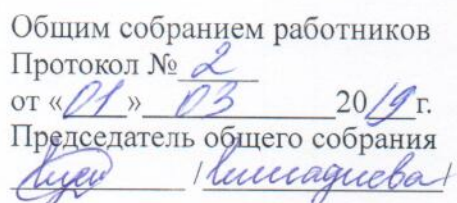 Общим собранием работников
Протокол № 2
от «01» 03 2019 г.
Председатель общего собрания
/ /